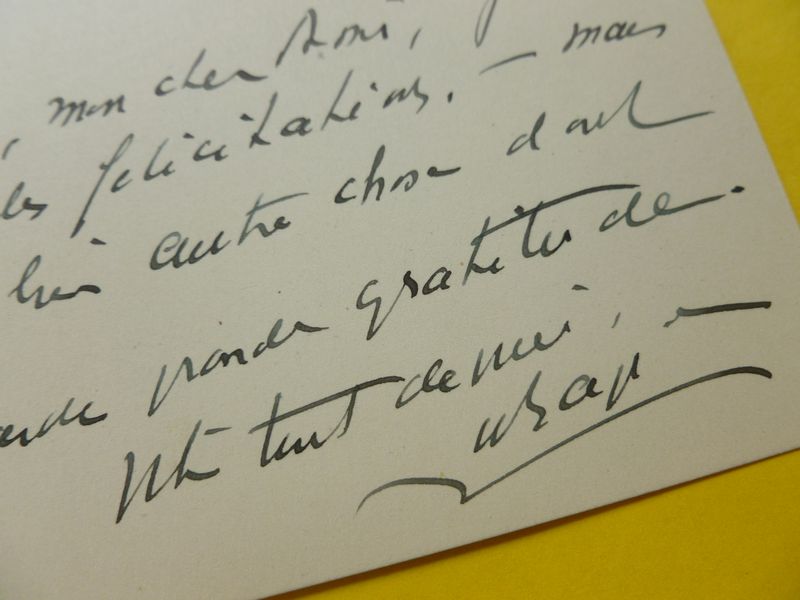 , mon cher Ami,
les félicitations. — mais
bien autre chose dont
garde grande gratitude.
tout dévoué, —